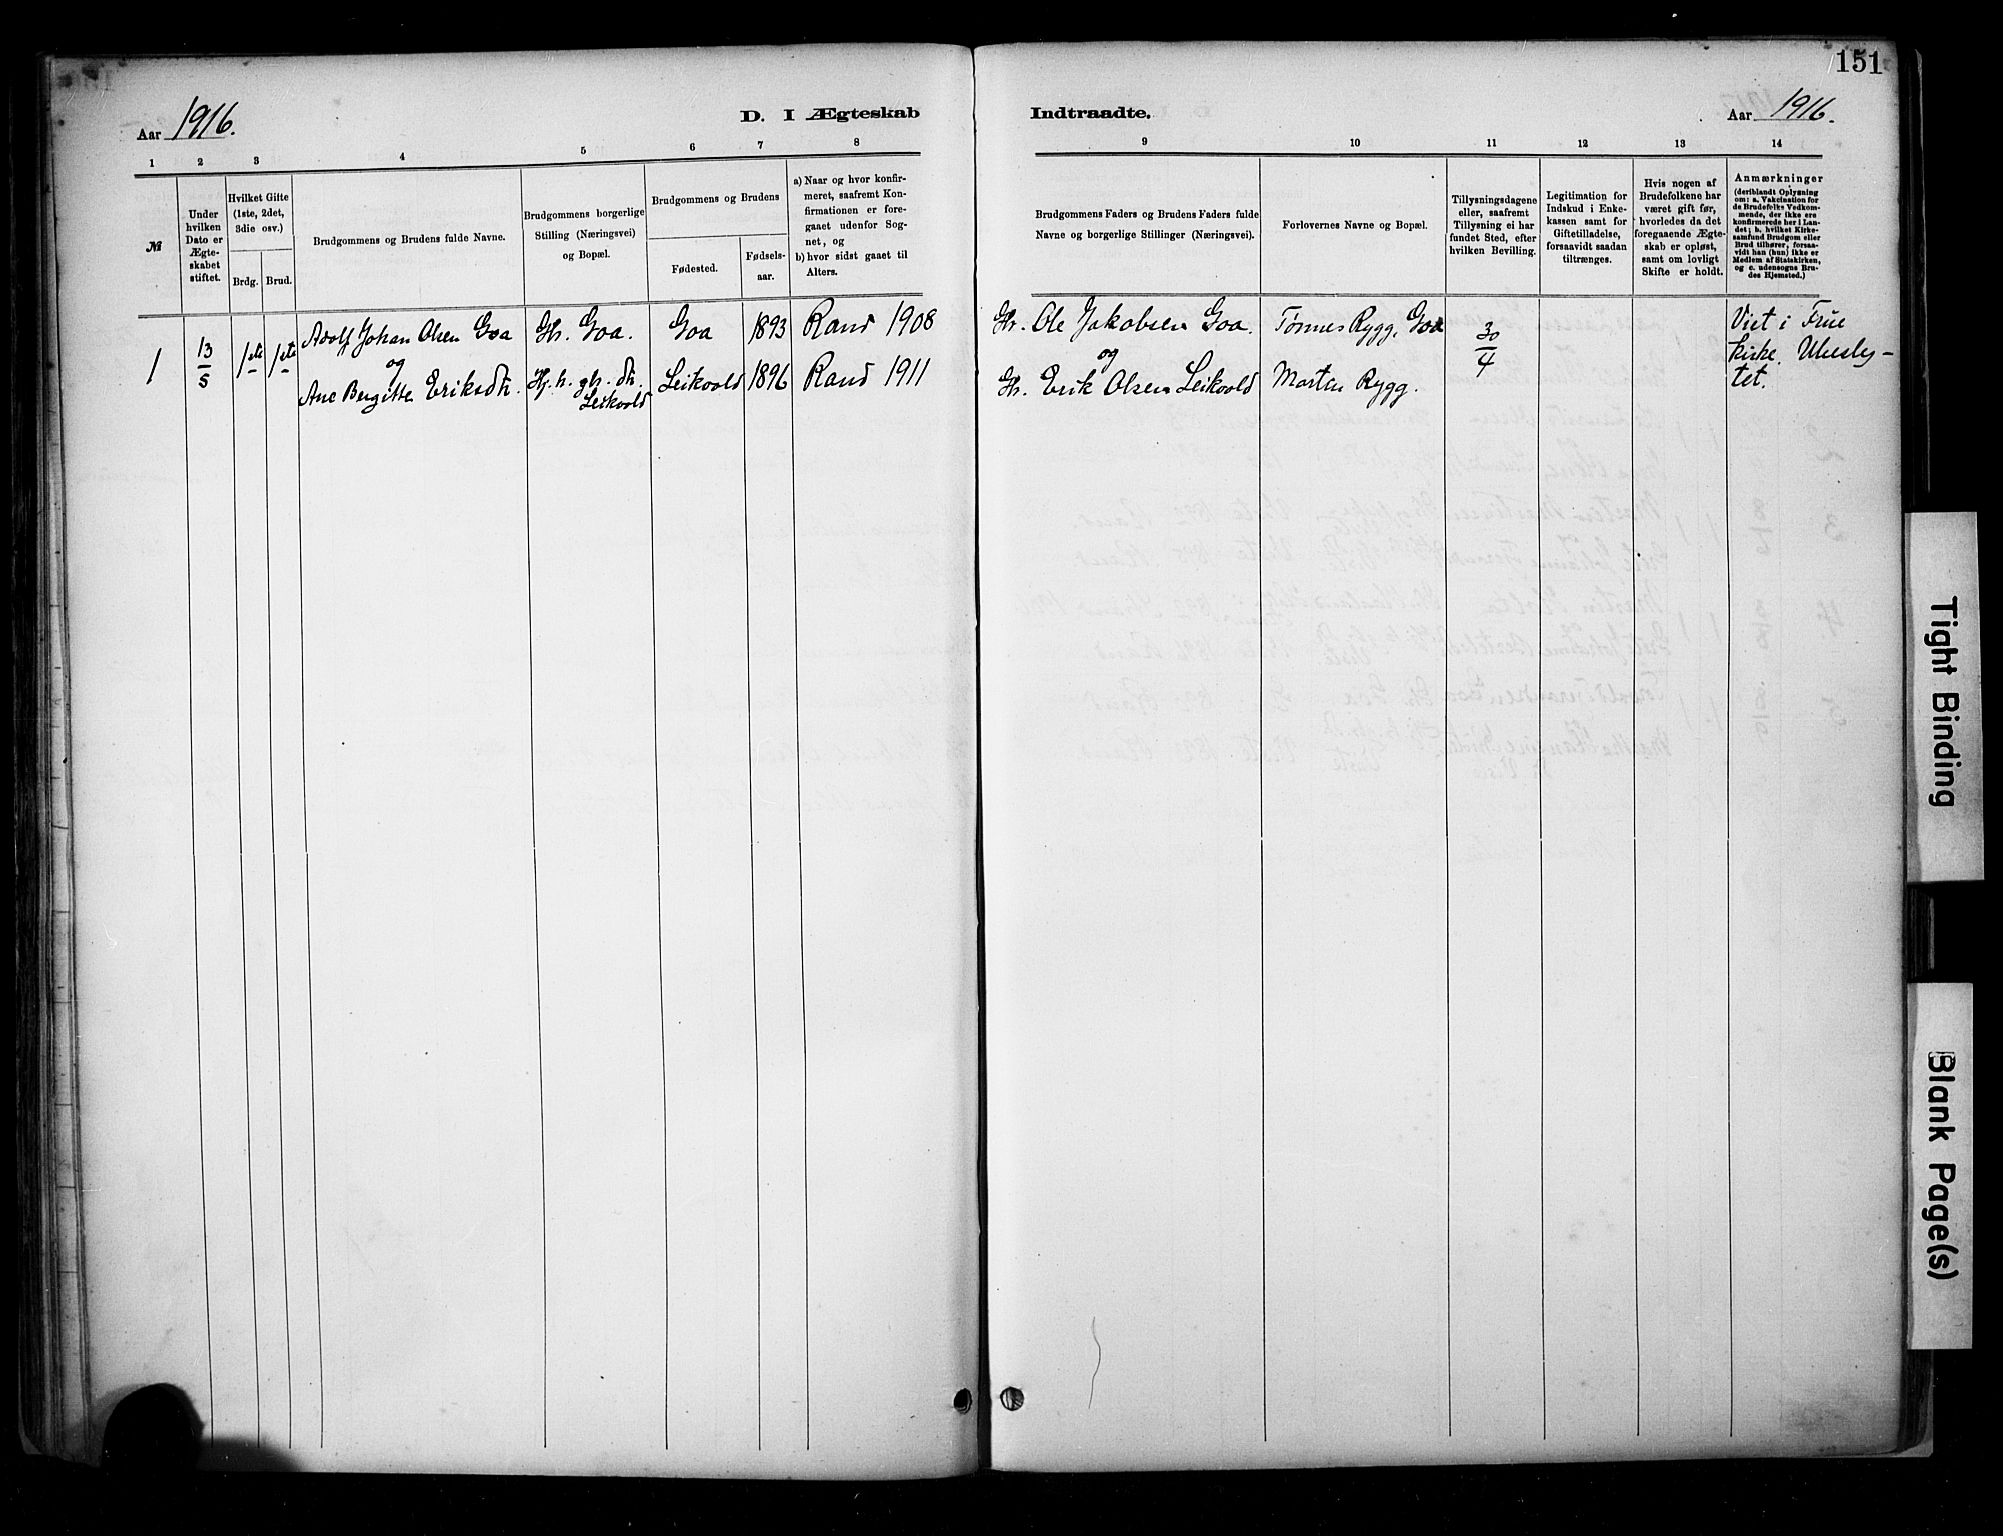 151
Aar 1916.
D. I Ægteskab
Indtraadte.
Aar 1916.
1 2 3 4 5 6 7 8 9 10 11 12 13 14
№
Under
hvilken
Dato er
Ægte-
skabet
stiftet.
Hvilket Gifte
(1ste, 2det,
3die osv.)
Brdg. Brud.
Brudgommens og Brudens fulde Navne.
Brudgommens borgerlige
Stilling (Næringsvei)
og Bopæl.
Brudgommens og Brudens
Fødested.
Fødsels-
aar.
a) Naar og hvor konfir-
meret, saafremt Kon-
firmationen er fore-
gaaet udenfor Sog-
net, og
b) hvor sidst gaaet til
Alters.
Brudgommens Faders og Brudens Faders fulde
Navne og borgerlige Stillinger (Næringsvei).
Forlovernes Navne og Bopæl.
Tillysningsdagene
eller, saafremt
Tillysning ei har
fundet Sted, efter
hvilken Bevilling.
Legitimation for
Indskud i Enke-
kassen samt for
Giftetilladelse,
forsaavidt saadan
tiltrænges.
Hvis nogen af
Brudefolkene har
været gift før,
hvorledes da det
foregaaende Ægte-
skab er opløst,
samt om lovligt
Skifte er holdt.
Anmærkninger
(deriblandt Oplysning
om: a. Vakcination for
de Brudefolks Vedkom-
mende, der ikke ere
konfirmerede her i Lan-
det; b. hvilket Kirke-
samfund Brudgom eller
Brud tilhører, forsaa-
vidt han (hun) ikke er
Medlem af Statskirken,
og c. udensogns Bru-
des Hjemsted.)
1 13/5 1ste 1ste
Adolf Johan Olsen Goa
og
Ane Bergitte Eriksdtr.
Gbr. Goa.
Hj. h. gbr. dtr.
Leikvold
Goa 1893 Rand 1908
Leikvold 1896 Rand 1911
Gbr. Ole Jakobsen Goa.
og
Gbr. Erik Olsen Leikvold
Tønnes Rygg, Goa
Morten Rygg.
30/4
Viet i Frue
kirke.
tet.
Tight Binding
Blank Page(s)